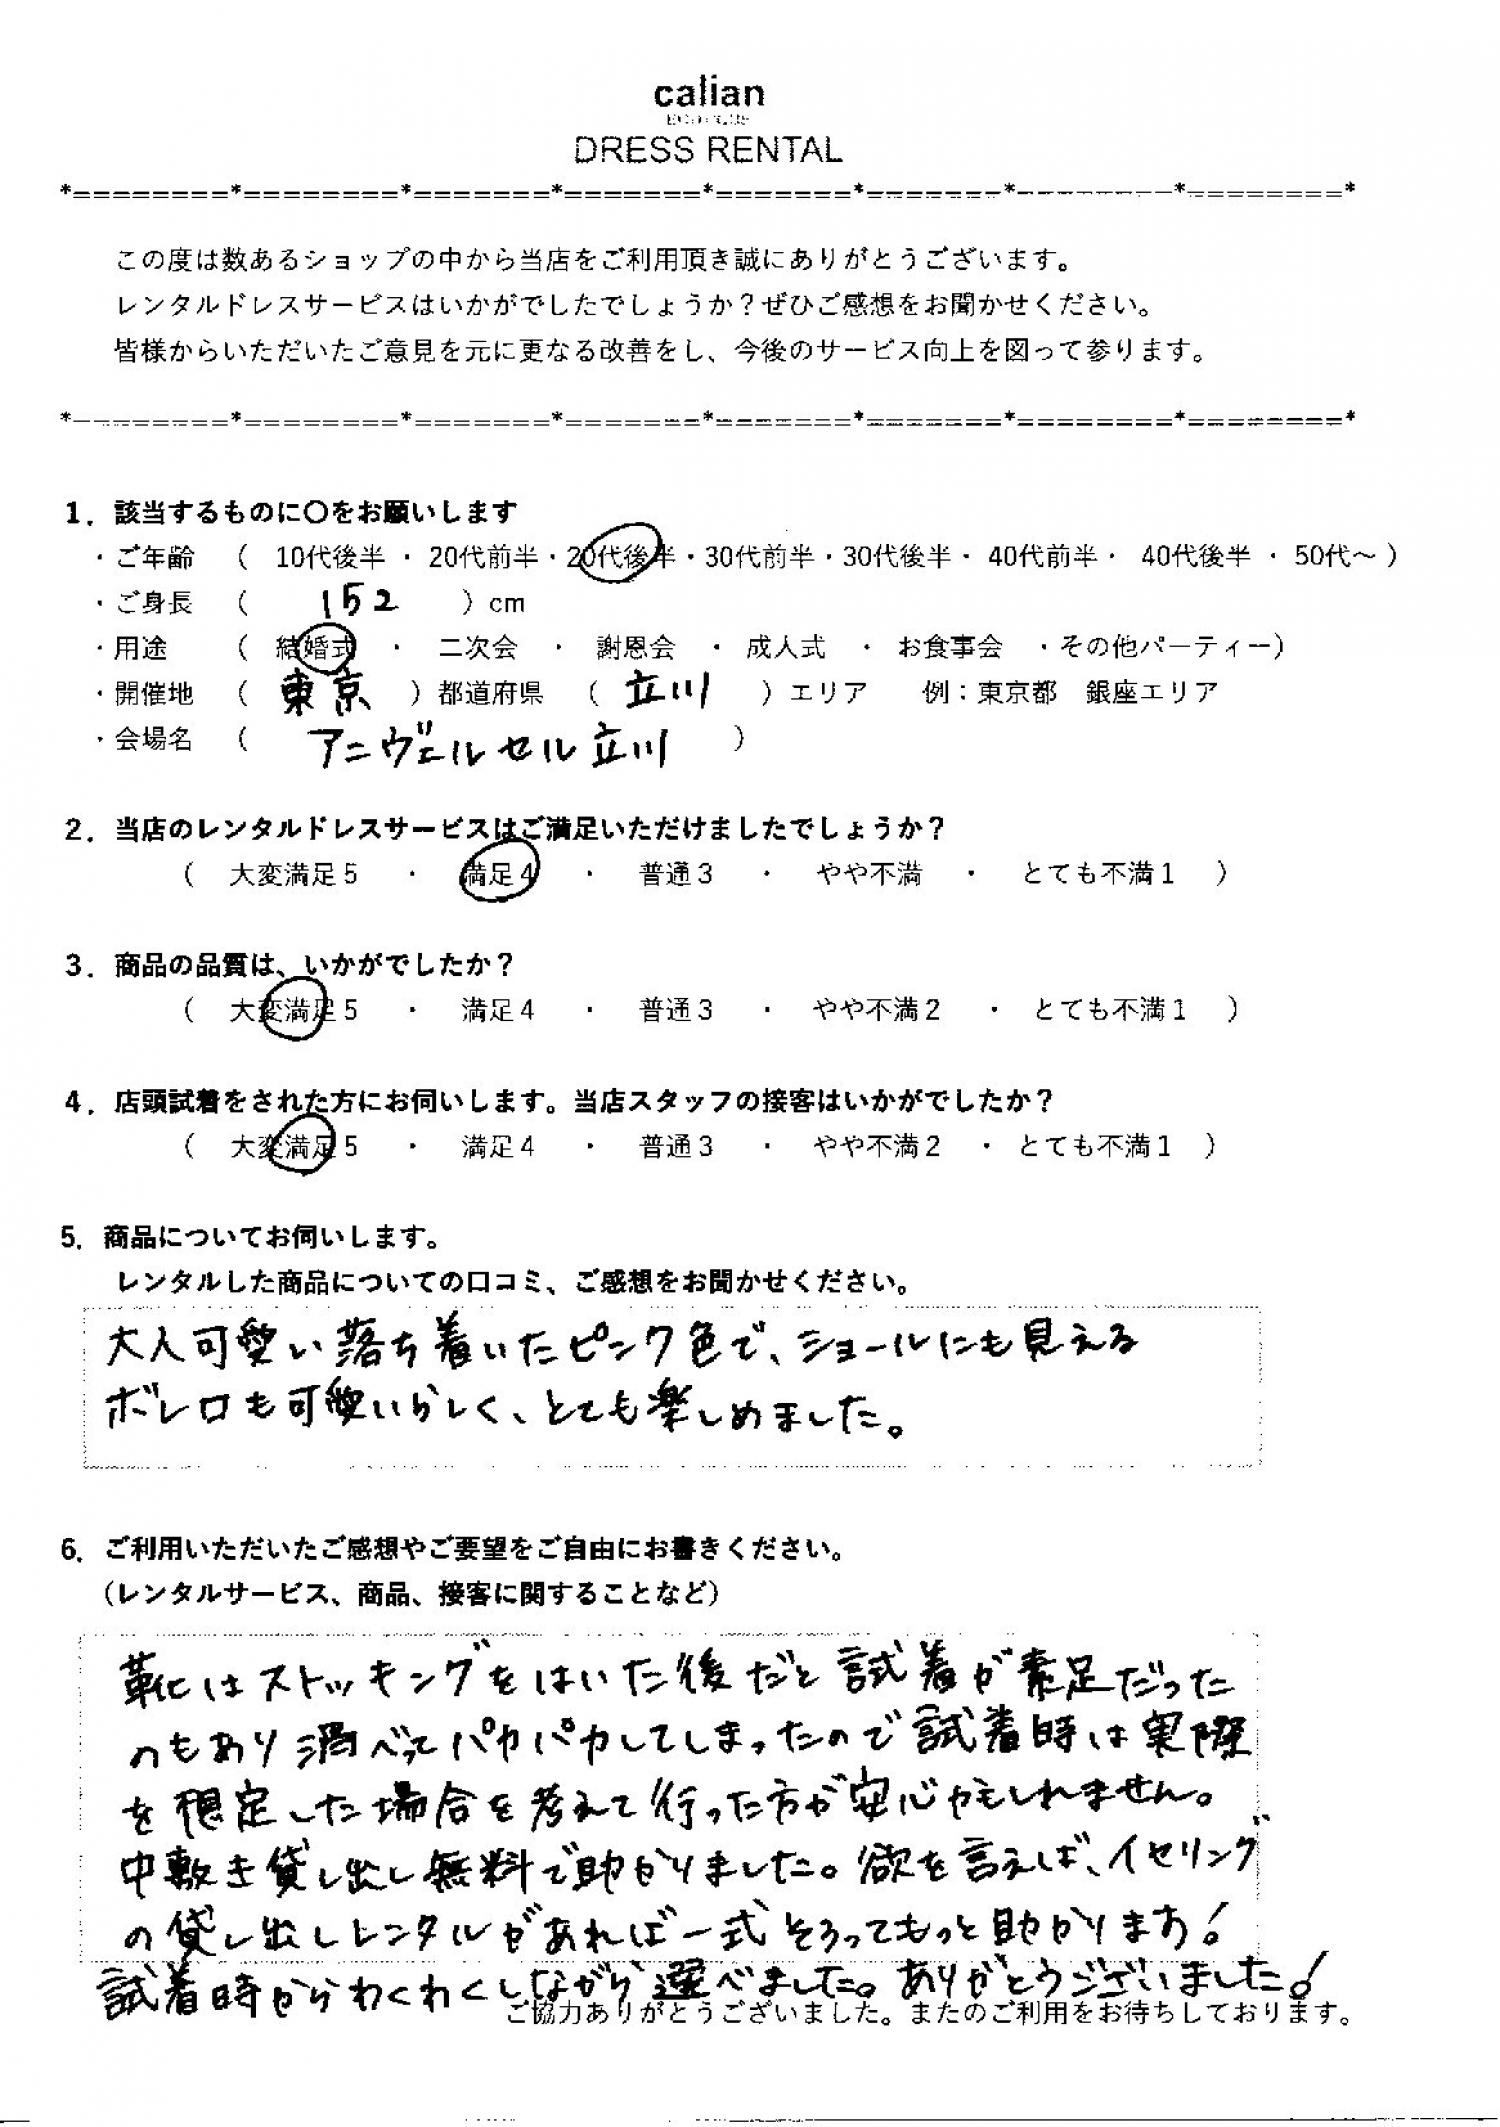 calian
DRESS RENTAL
*========*========*=======*=======*=======*=======*--------*========*
この度は数あるショップの中から当店をご利用頂き誠にありがとうございます。
レンタルドレスサービスはいかがでしたでしょうか？ぜひご感想をお聞かせください。
皆様からいただいたご意見を元に更なる改善をし、今後のサービス向上を図って参ります。
*--------*========*=======*=======*=======*=======*========*========*
1．該当するものに〇をお願いします
・ご年齢 （ 10代後半 ・ 20代前半・20代後半・30代前半・30代後半・ 40代前半・ 40代後半 ・ 50代～ ）
・ご身長 （ 152 ）cm
・用途 （ 結婚式 ・ 二次会 ・ 謝恩会 ・ 成人式 ・ お食事会 ・その他パーティー）
・開催地 （ 東京 ）都道府県 （ 立川 ）エリア 例：東京都 銀座エリア
・会場名 （ アニヴェルセル立川 ）
2．当店のレンタルドレスサービスはご満足いただけましたでしょうか？
（ 大変満足５ ・ 満足４ ・ 普通３ ・ やや不満 ・ とても不満１ ）
3．商品の品質は、いかがでしたか？
（ 大変満足５ ・ 満足４ ・ 普通３ ・ やや不満２ ・ とても不満１ ）
4．店頭試着をされた方にお伺いします。当店スタッフの接客はいかがでしたか？
（ 大変満足５ ・ 満足４ ・ 普通３ ・ やや不満２ ・ とても不満１ ）
5．商品についてお伺いします。
レンタルした商品についての口コミ、ご感想をお聞かせください。
大人可愛い落ち着いたピンク色で、ショールにも見える
ボレロも可愛いらしく、とても楽しめました。
6．ご利用いただいたご感想やご要望をご自由にお書きください。
（レンタルサービス、商品、接客に関することなど）
靴はストッキングをはいた後だと試着が素足だった
のもあり滑べってパカパカしてしまったので試着時は実際
を想定した場合を考えて行った方が安心かもしれません。
中敷き貸し出し無料で助かりました。欲を言えば、イヤリング
の貸し出しレンタルがあれば一式そろってもっと助かります！
試着時からわくわくしながら選べました。ありがとうございました！
ご協力ありがとうございました。またのご利用をお待ちしております。